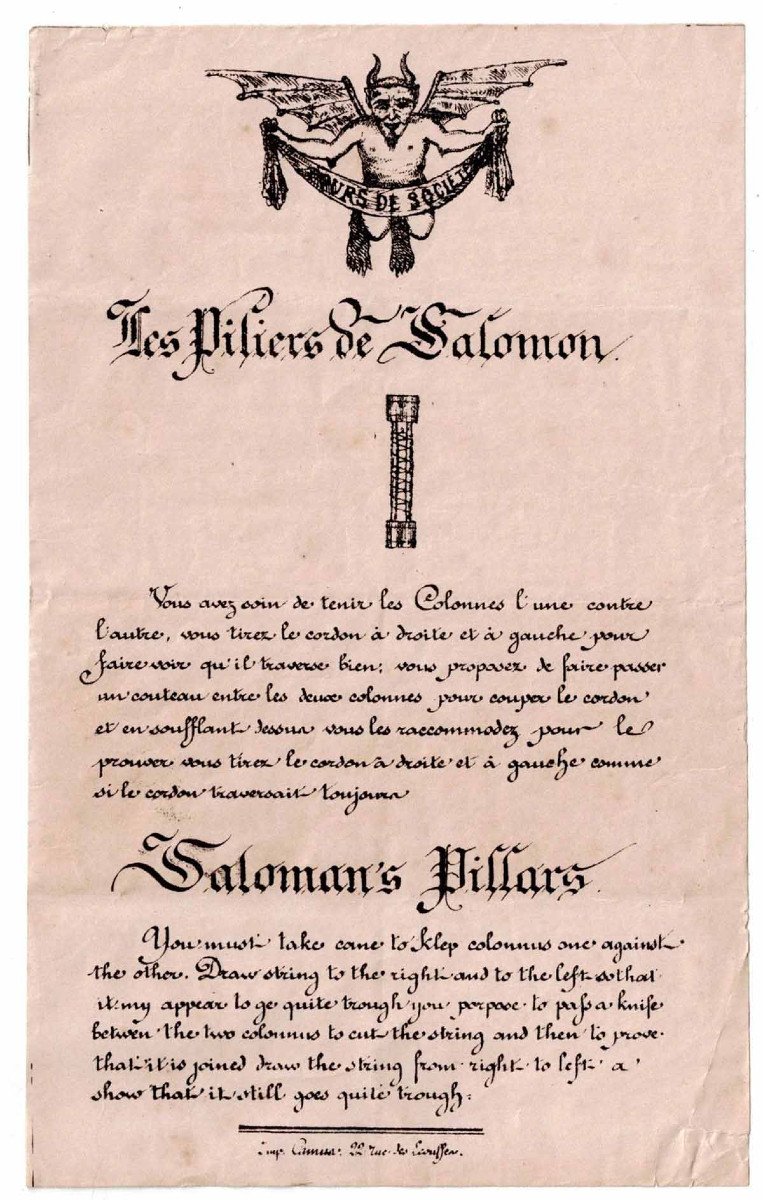 OURS DE SOCIETE
Les Piliers de Salomon.
Vous avez soin de tenir les Colonnes l'une contre
l'autre, vous tirez le cordon à droite et à gauche pour
faire voir qu'il traverse bien; vous proposez de faire passer
un couteau entre les deux colonnes pour couper le cordon
et en soufflant dessus vous les raccommodez pour le
prouver vous tirez le cordon à droite et à gauche comme
si le cordon traversait toujours
Saloman's Pillars.
You must take cane to klep colonnus one against
the other. Draw string to the right and to the left so that
it my appear to ge quite trough you porpose to pass a knife
betwen the two colonnus to cut the string and then to prove
that it is joined draw the string from right to left a
show that it still goes quite trough.
Imp. Camus. 22 rue des Ecouffes.